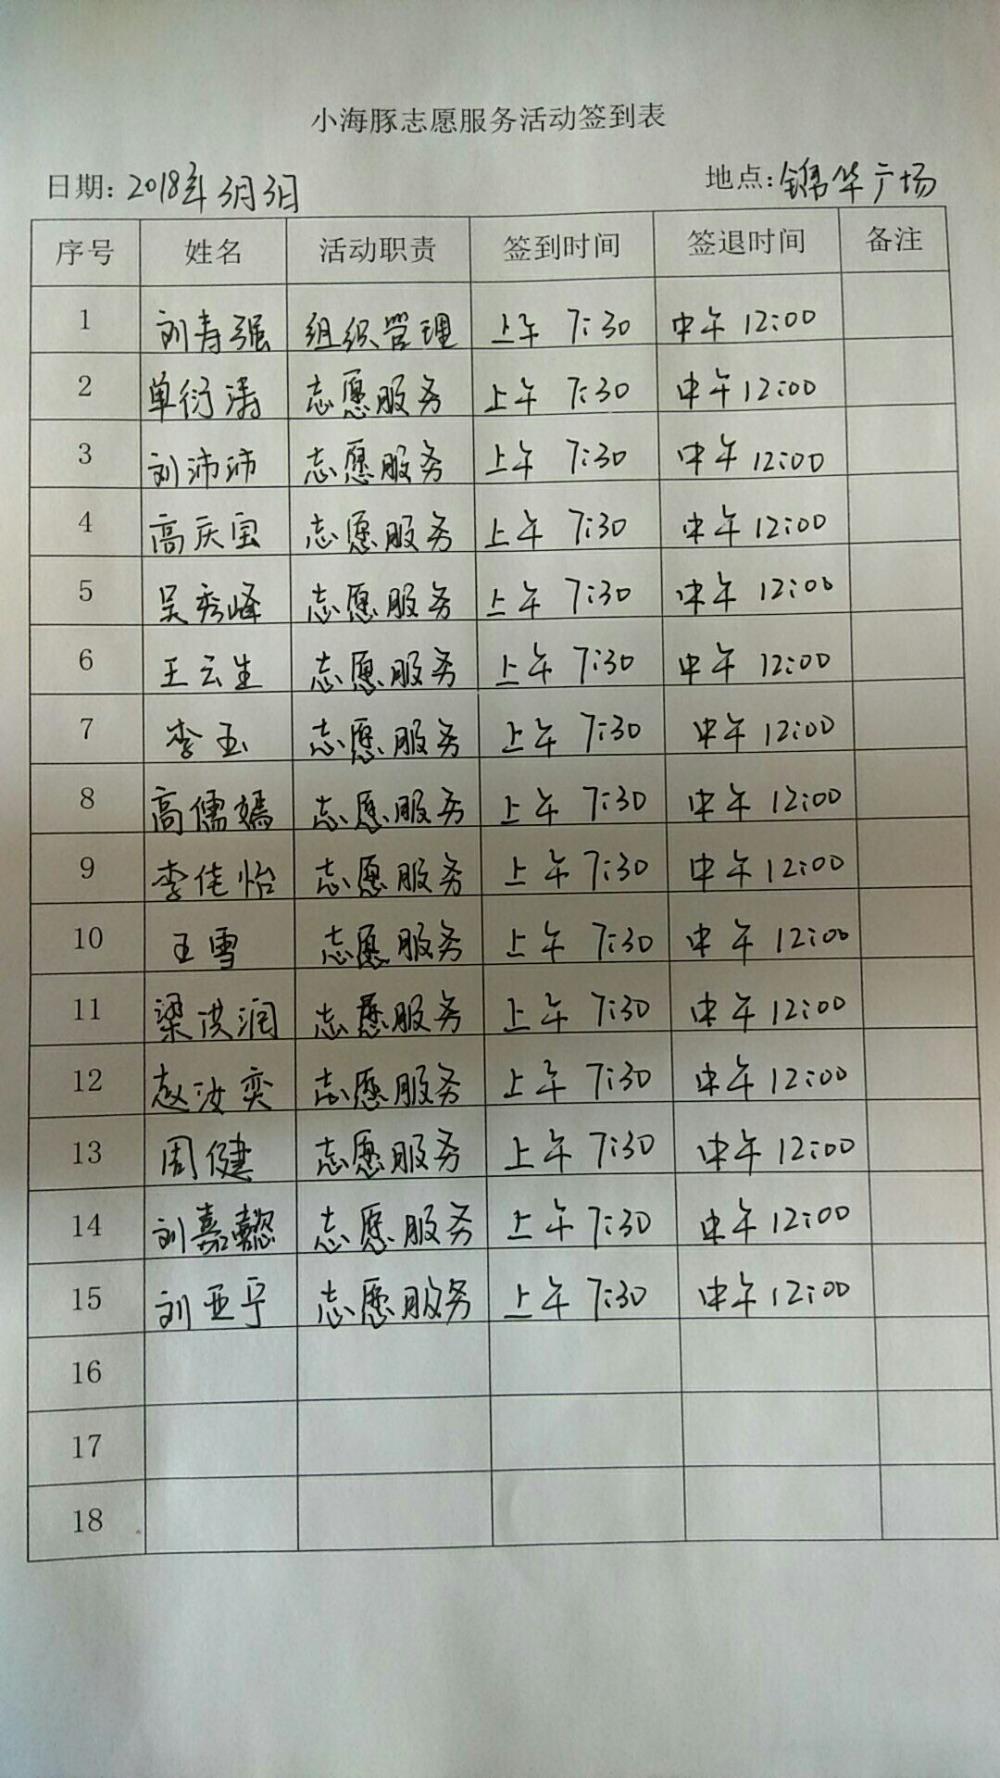 小海豚志愿服务活动签到表
日期: 2018年3月3日 地点: 锦华广场
序号 姓名 活动职责 签到时间 签退时间 备注
1 刘寿强 组织管理 上午 7:30 中午 12:00
2 单衍涛 志愿服务 上午 7:30 中午 12:00
3 刘沛沛 志愿服务 上午 7:30 中午 12:00
4 高庆宝 志愿服务 上午 7:30 中午 12:00
5 吴秀峰 志愿服务 上午 7:30 中午 12:00
6 王云生 志愿服务 上午 7:30 中午 12:00
7 李玉 志愿服务 上午 7:30 中午 12:00
8 高儒嫣 志愿服务 上午 7:30 中午 12:00
9 李佳怡 志愿服务 上午 7:30 中午 12:00
10 王雪 志愿服务 上午 7:30 中午 12:00
11 梁洪润 志愿服务 上午 7:30 中午 12:00
12 赵汝奕 志愿服务 上午 7:30 中午 12:00
13 周健 志愿服务 上午 7:30 中午 12:00
14 刘嘉懿 志愿服务 上午 7:30 中午 12:00
15 刘亚宁 志愿服务 上午 7:30 中午 12:00
16
17
18